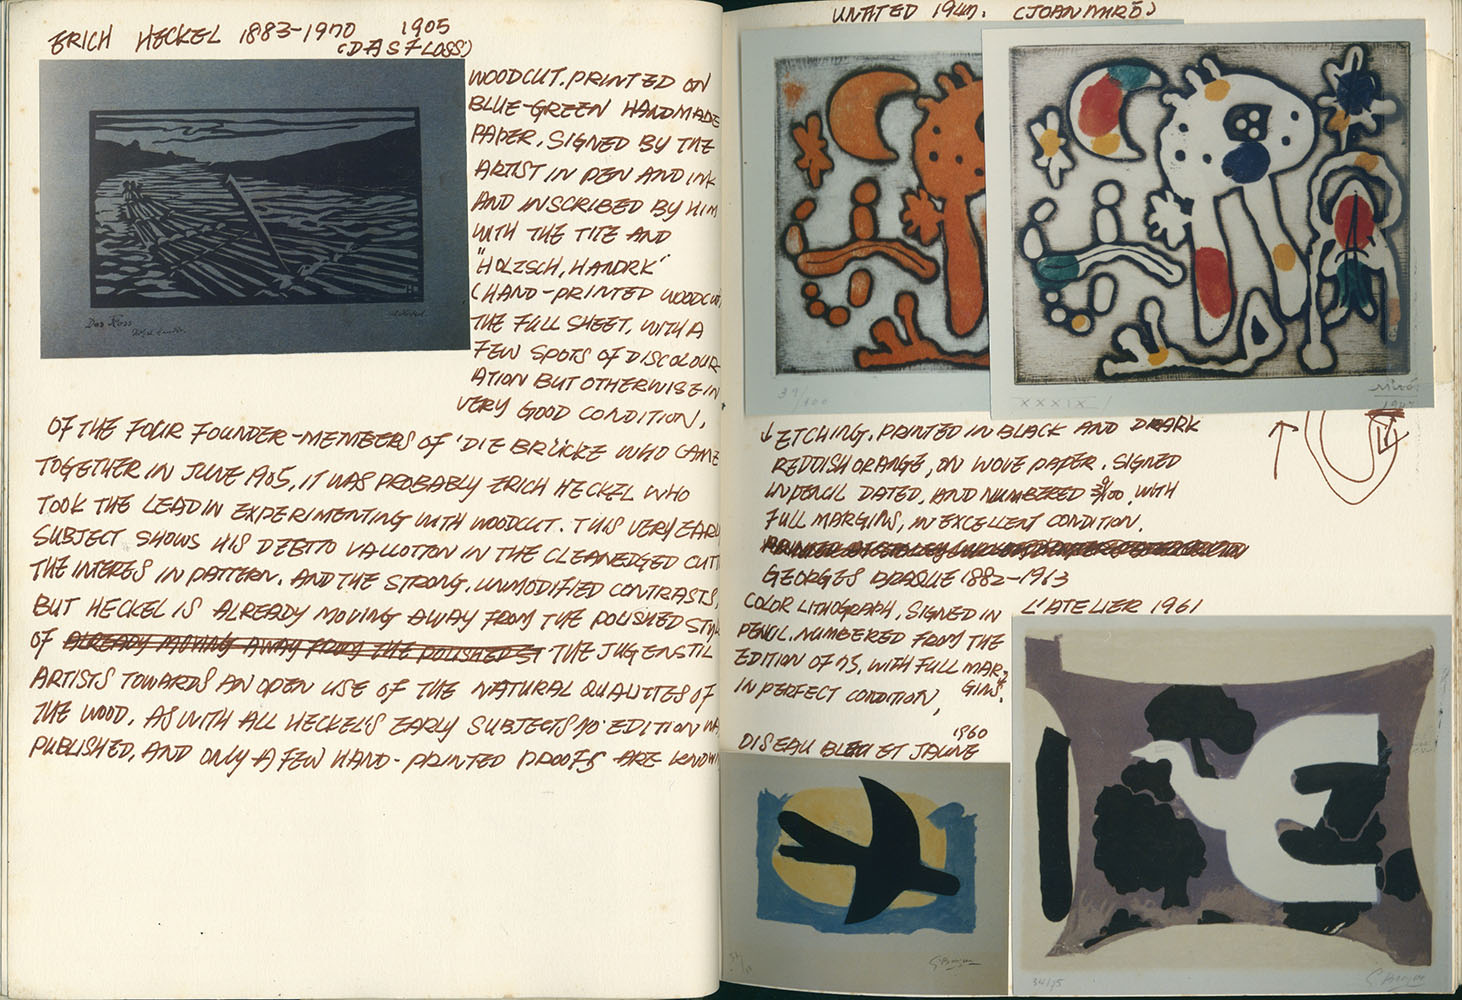 ERICH HECKEL 1883-1970 1905
(DAS FLOSS)
WOODCUT. PRINTED ON
BLUE-GREEN HANDMADE
PAPER. SIGNED BY THE
ARTIST IN PEN AND INK
AND INSCRIBED BY HIM
WITH THE TITE AND
"HOLZSCH, HANDRK"
(HAND-PRINTED WOODCUT
THE FULL SHEET, WITH A
FEW SPOTS OF DISCOLOUR-
ATION BUT OTHERWISE IN
VERY GOOD CONDITION.
OF THE FOUR FOUNDER-MEMBERS OF 'DIE BRÜCKE WHO CAME
TOGETHER IN JUNE 1905, IT WAS PROBABLY ERICH HECKEL WHO
TOOK THE LEAD IN EXPERIMENTING WITH WOODCUT. THIS VERY EARL
SUBJECT SHOWS HIS DEBT TO VALLOTTON IN THE CLEANEDGED CUTT
THE INTERES IN PATTERN. AND THE STRONG, UNMODIFIED CONTRASTS,
BUT HECKEL IS ALREADY MOVING AWAY FROM THE POLISHED STYL
OF ALREADY MOVING AWAY FROM THE POLISHED ST THE JUGENSTIL
ARTISTS TOWARDS AN OPEN USE OF THE NATURAL QUALITES OF
THE WOOD, AS WITH ALL HECKEL'S EARLY SUBJECTS NO EDITION WA
PUBLISHED, AND ONLY A FEW HAND-PRINTED PROOFS ARE KNOWN
Das Floss
UNTITED 1947. (JOAN MIRÓ)
39/100
XXXIX/
Miró.
1947
↓ ETCHING. PRINTED IN BLACK AND DRARK
REDDISH ORANGE, ON WOVE PAPER. SIGNED
IN PENCIL DATED, AND NUMBERED 39/100. WITH
FULL MARGINS, IN EXCELLENT CONDITION.
GEORGES BRAQUE 1882-1963
L'ATELIER 1961
COLOR LITHOGRAPH, SIGNED IN
PENCIL. NUMBERED FROM THE
EDITION OF 75, WITH FULL MAR-
GINS.
IN PERFECT CONDITION,
1960
OISEAU BLEU ET JAUNE
G Braque
34/75
G Braque